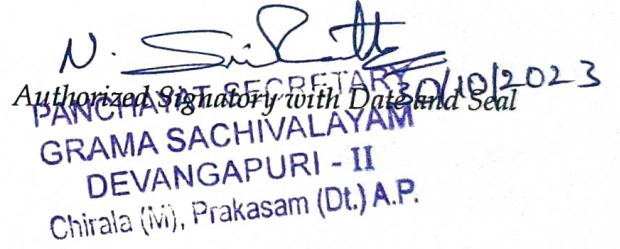 N.
30/10/2023
Authorized Signatory with Date and Seal
PANCHAYAT SECRETARY
GRAMA SACHIVALAYAM
DEVANGAPURI - II
Chirala (M), Prakasam (Dt.) A.P.